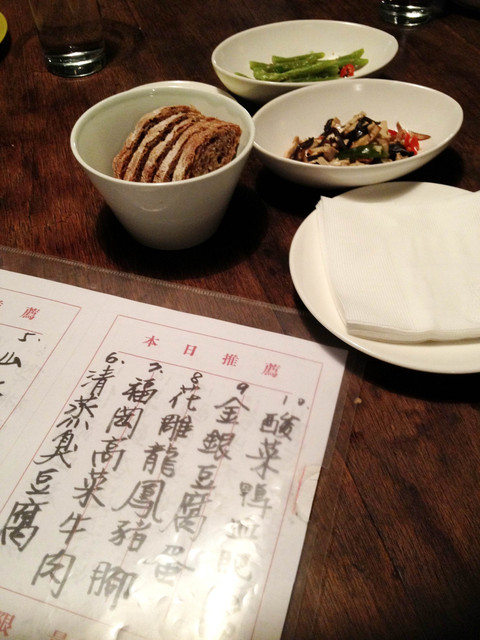 薦
5. 山
本日推薦
6. 清蒸臭豆腐
7. 福岡高菜牛肉
8. 花雕龍鳳豬腳
9. 金銀豆腐
10. 酸菜鴨血肥
限